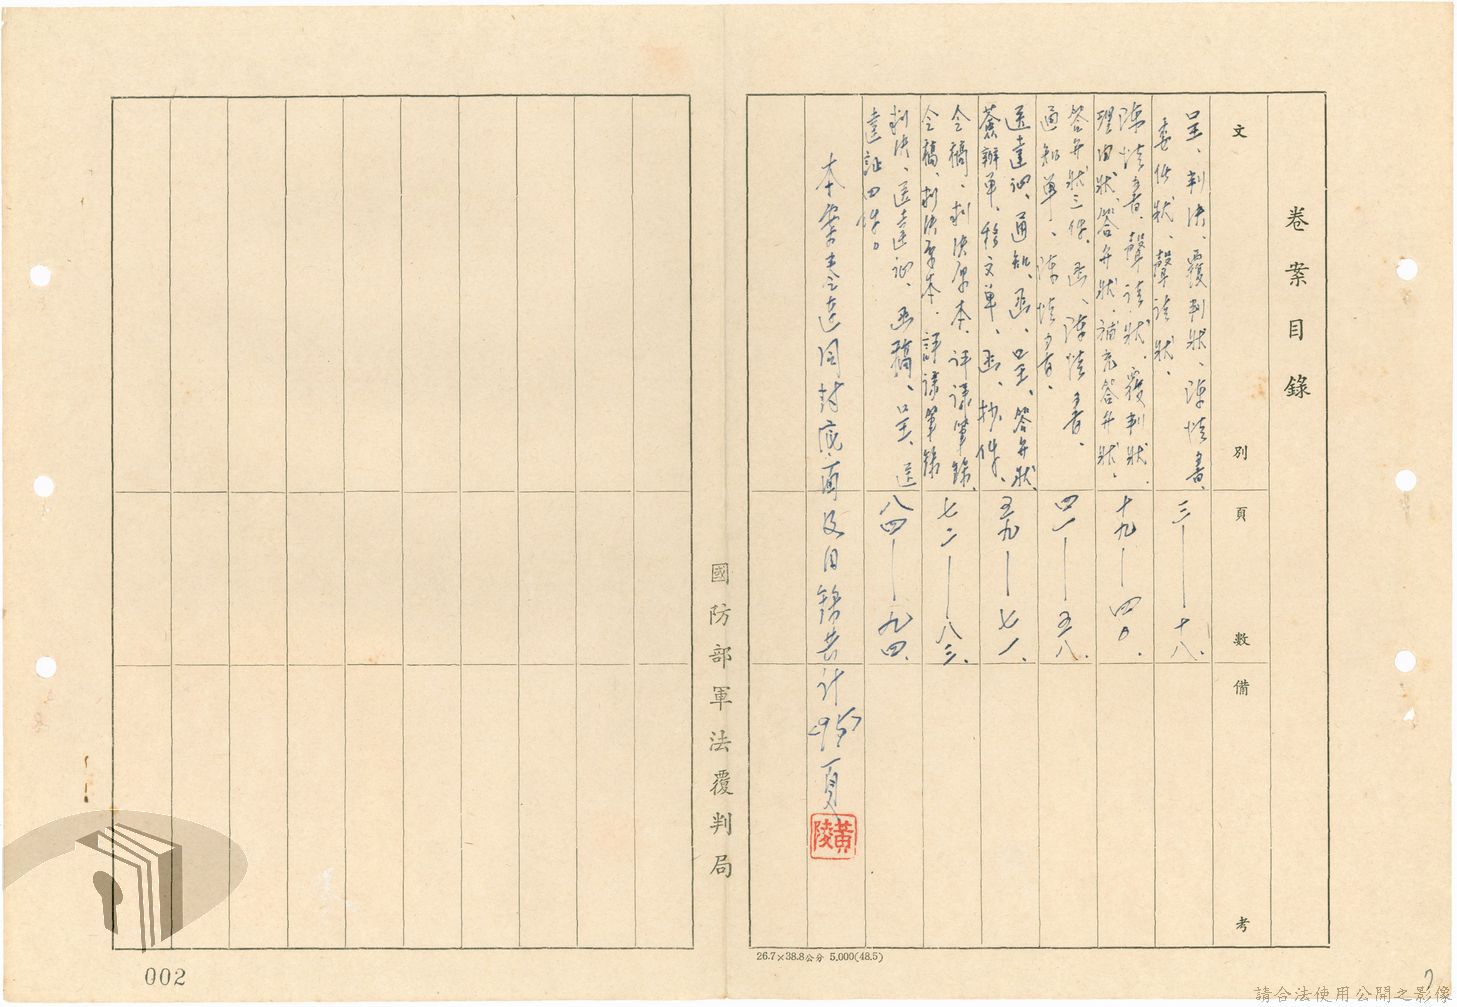 卷案目錄
文別
頁數
備考
呈、判決、覆判狀、陳情書、
委任狀、聲請狀、
三—十八、
陳情書、聲請狀、覆判狀、
理由狀、答弁狀、補充答弁狀、
十九—四〇、
答弁狀三件、函、陳情書、
通知單、陳情書、
四一—五八、
送達證、通知、函、呈、答弁狀、
簽辦單、移文單、函、抄件、
五九—七一、
令稿、判決原本、評議筆錄、
令稿、判決原本、評議筆錄
七二—八三、
判決、送達証、函稿、呈、送
達証四件。
八四—九四、
本案卷連同封底、面及目錄共計95頁
黃陵
國防部軍法覆判局
26.7×38.8公分 5,000(48.5)
002
2
請合法使用公開之影像